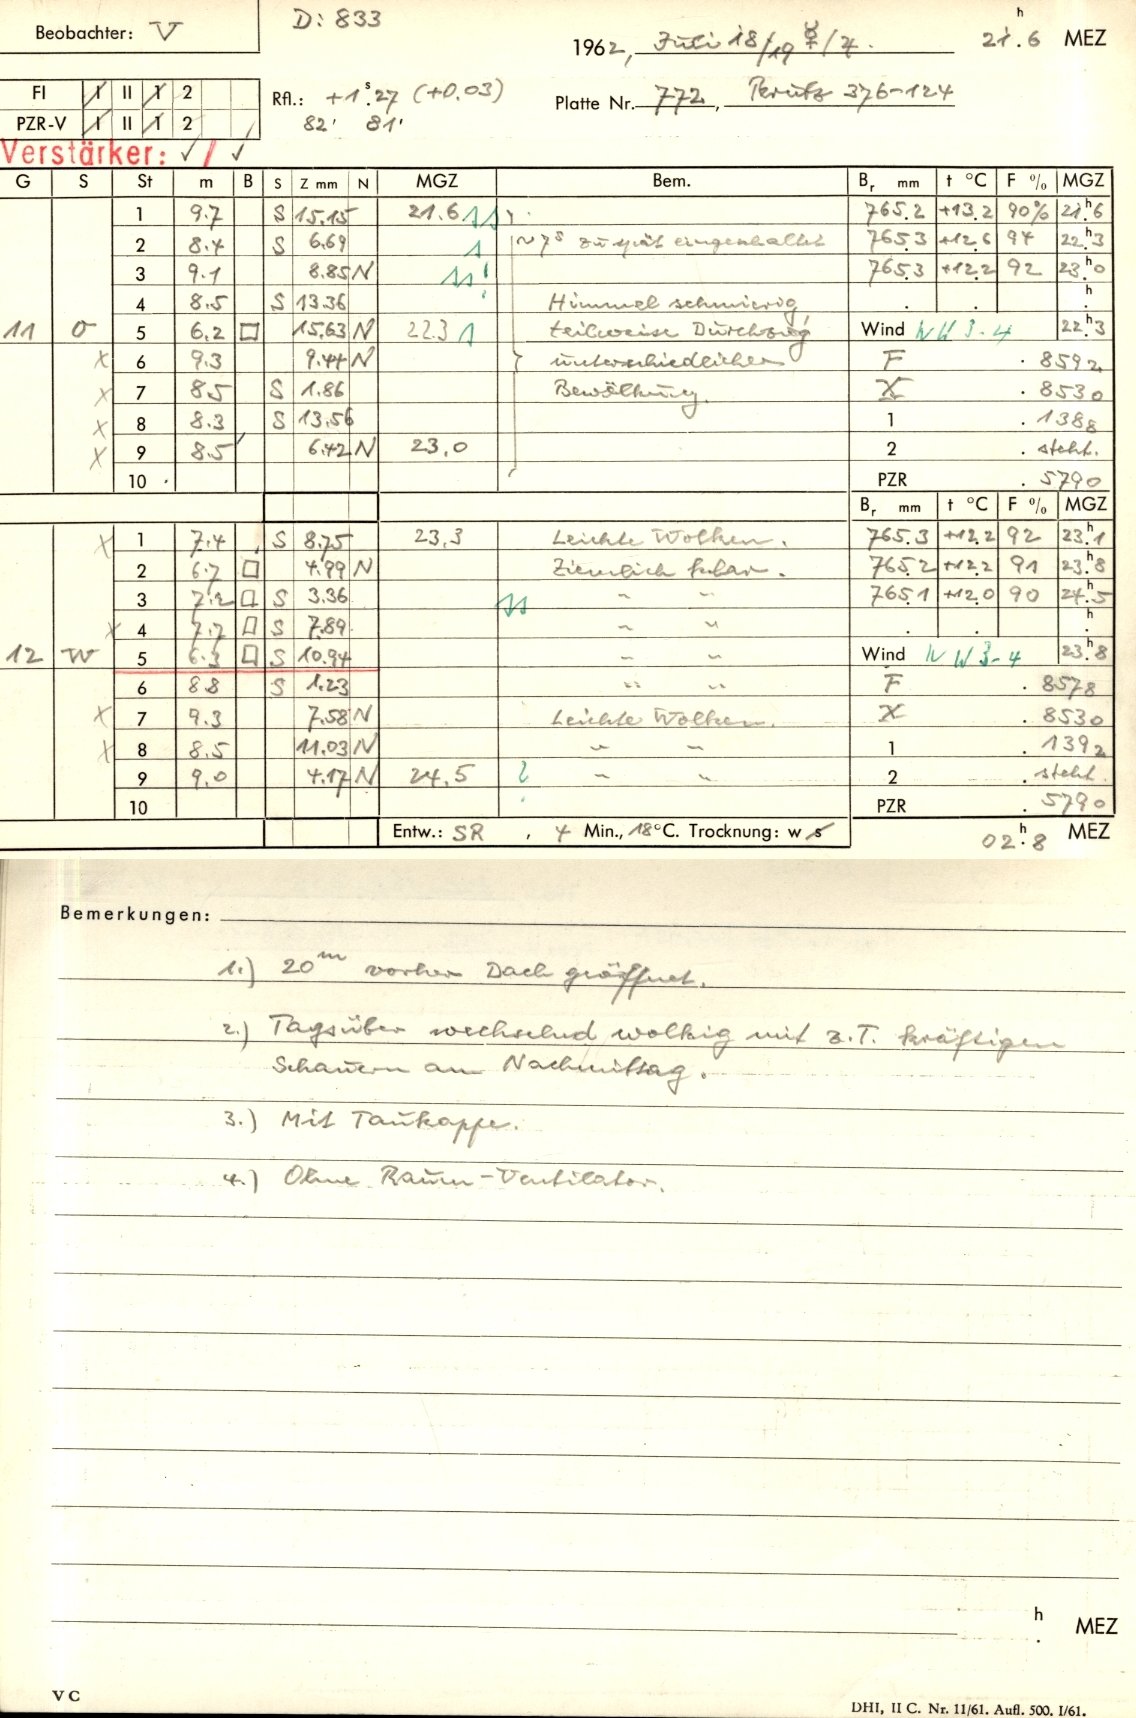 Beobachter: V
D: 833
1962, Juli 18/19 ☿/4. 21h.6 MEZ
FI I II 1 2
PZR-V I II 1 2
Rfl.: +1s.27 (+0.03)
82' 81'
Platte Nr. 772, Perutz 376-124
Verstärker: ✓/✓
G S St m B S Z mm N MGZ Bem. Br mm t °C F % MGZ
1 9.7 S 15.15 21.6 765.2 +13.2 90% 21h.6
2 8.4 S 6.69 ~7s zu spät eingeschaltet 765.3 +12.6 94 22h.3
3 9.1 8.85 N 765.3 +12.2 92 23h.0
4 8.5 S 13.36 Himmel schmierig, . . h.
11 O 5 6.2 □ 15.63 N 22.3 teilweise Durchzug Wind NW 3-4 22h.3
X 6 9.3 9.44 N unterschiedlicher F . 8592
X 7 8.5 S 1.86 Bewölkung. X . 8530
X 8 8.3 S 13.56 1 . 1388
X 9 8.5 6.42 N 23.0 2 . steht.
10 PZR . 5790
Br mm t °C F % MGZ
X 1 7.4 S 8.75 23.3 Leichte Wolken. 765.3 +12.2 92 23h.1
2 6.7 □ 4.99 N Ziemlich klar. 765.2 +12.2 91 23h.8
3 7.2 □ S 3.36 " " 765.1 +12.0 90 24h.5
X 4 7.7 □ S 7.89 " " . . h.
12 W 5 6.3 □ S 10.94 " " Wind NW 3-4 23h.8
6 8.8 S 1.23 " " F . 8578
X 7 9.3 7.58 N Leichte Wolken. X . 8530
X 8 8.5 11.03 N " " 1 . 1392
9 9.0 4.17 N 24.5 " " 2 . steht.
10 PZR . 5790
Entw.: SR , 4 Min., 18°C. Trocknung: w s 02h.8 MEZ
Bemerkungen:
1.) 20m vorher Dach geöffnet.
2.) Tagsüber wechselnd wolkig mit z.T. kräftigen
Schauern am Nachmittag.
3.) Mit Taukappe.
4.) Ohne Raum-Ventilator.
h. MEZ
V C
DHI, II C. Nr. 11/61. Aufl. 500. I/61.